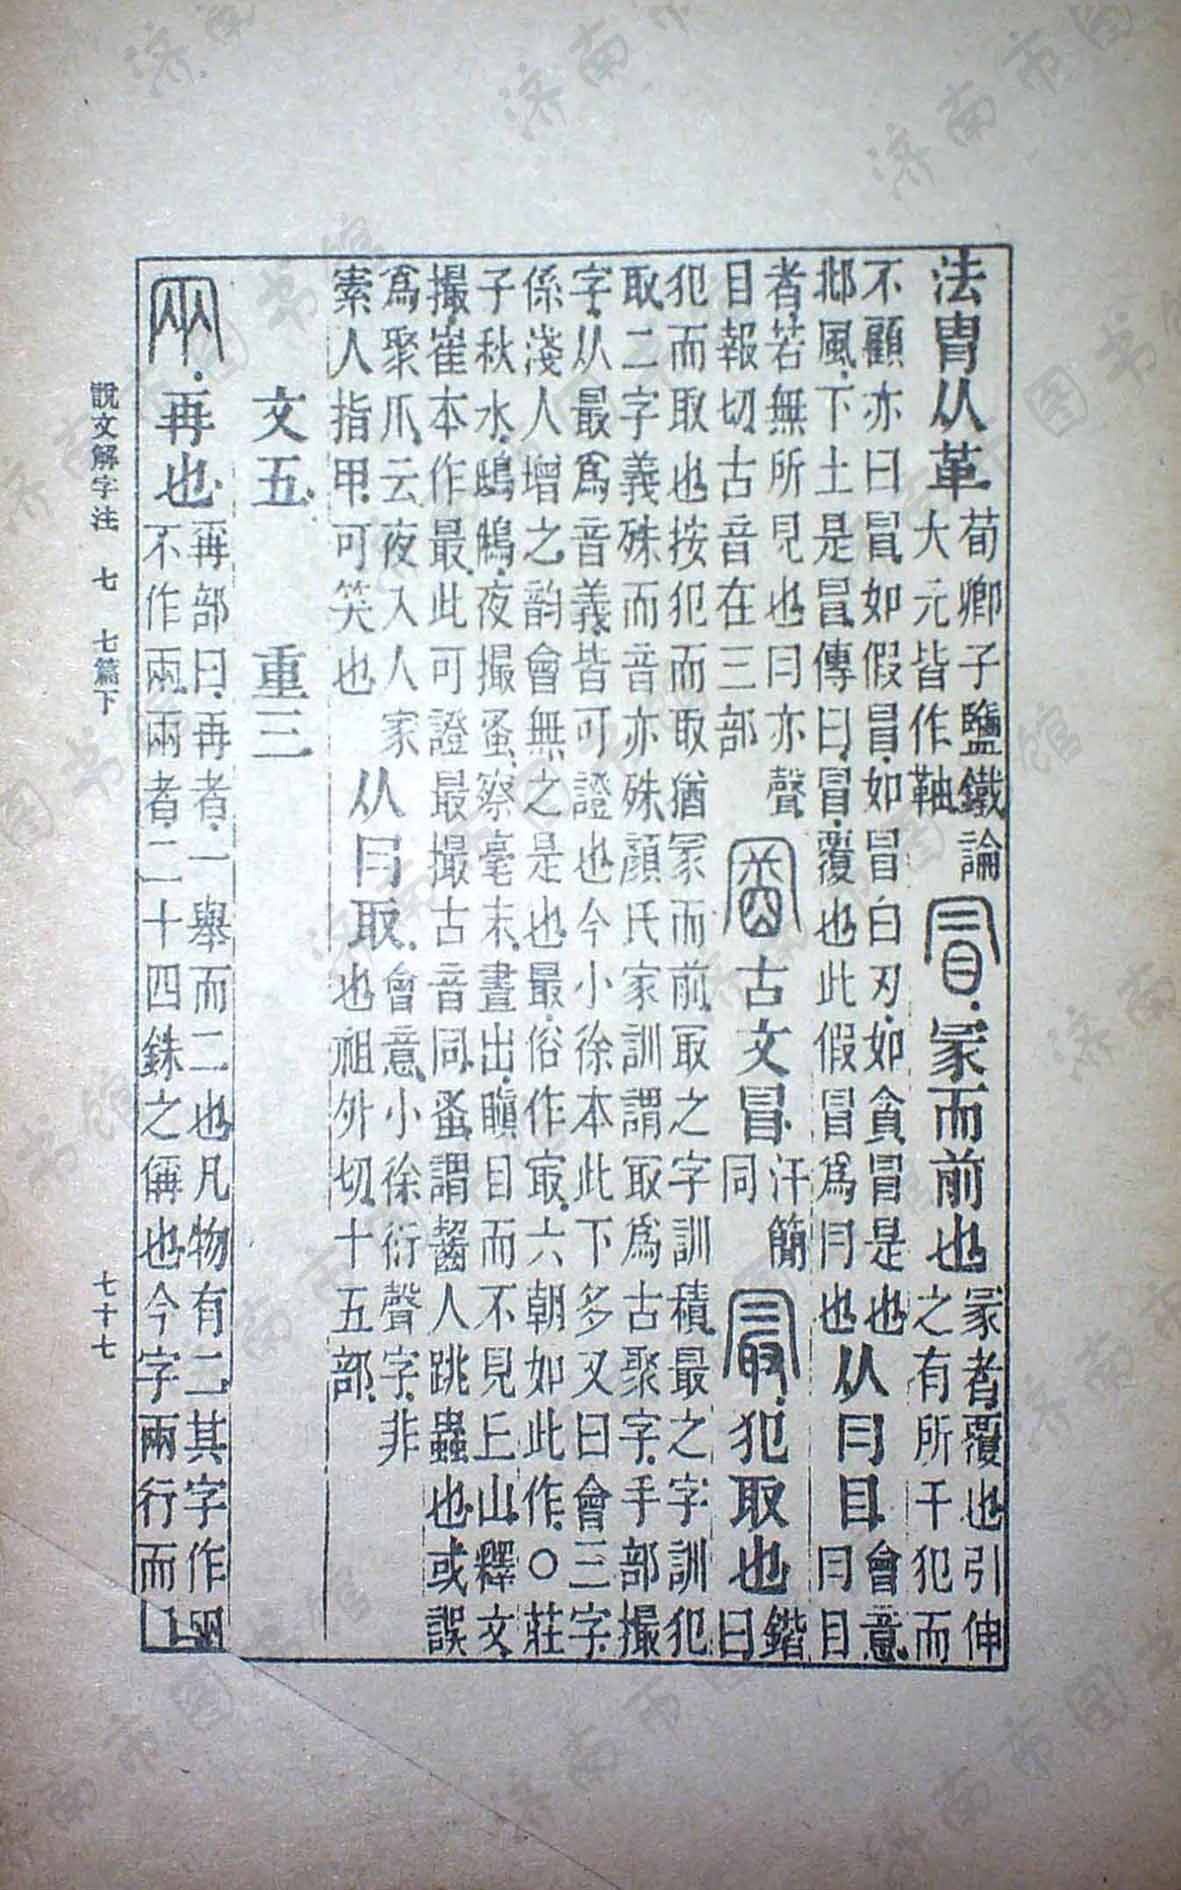 法冑从革
荀卿子鹽鐵論
大元皆作䩜
冡而前也
冡者覆也引伸
之有所干犯而
不顧亦曰冒如假冒如冒白刃如貪冒是也
邶風下土是冒傳曰冒覆也此假冒爲冃也
从冃目
會意
冃目
者若無所見也冃亦聲
目報切古音在三部
古文冒
汗簡
同
犯取也
鍇
曰
犯而取也按犯而取猶冡而前冣之字訓積最之字訓犯
取二字義殊而音亦殊顏氏家訓謂冣爲古聚字手部撮
字从最爲音義皆可證也今小徐本此下多又曰會三字
係淺人增之韵會無之是也最俗作冣六朝如此作○莊
子秋水鴟鵂夜撮蚤察毫末晝出瞋目而不見丘山釋文
撮崔本作最此可證最撮古音同蚤謂齧人跳蟲也或誤
爲聚爪云夜入人家
索人指甲可笑也
从冃取
會意小徐衍聲字非
也祖外切十五部
文五 重三
㒳再也
再部曰再者一舉而二也凡物有二其字作㒳
不作兩兩者二十四銖之偁也今字兩行而
說文解字注 七 七篇下 七十七
济南市图书馆